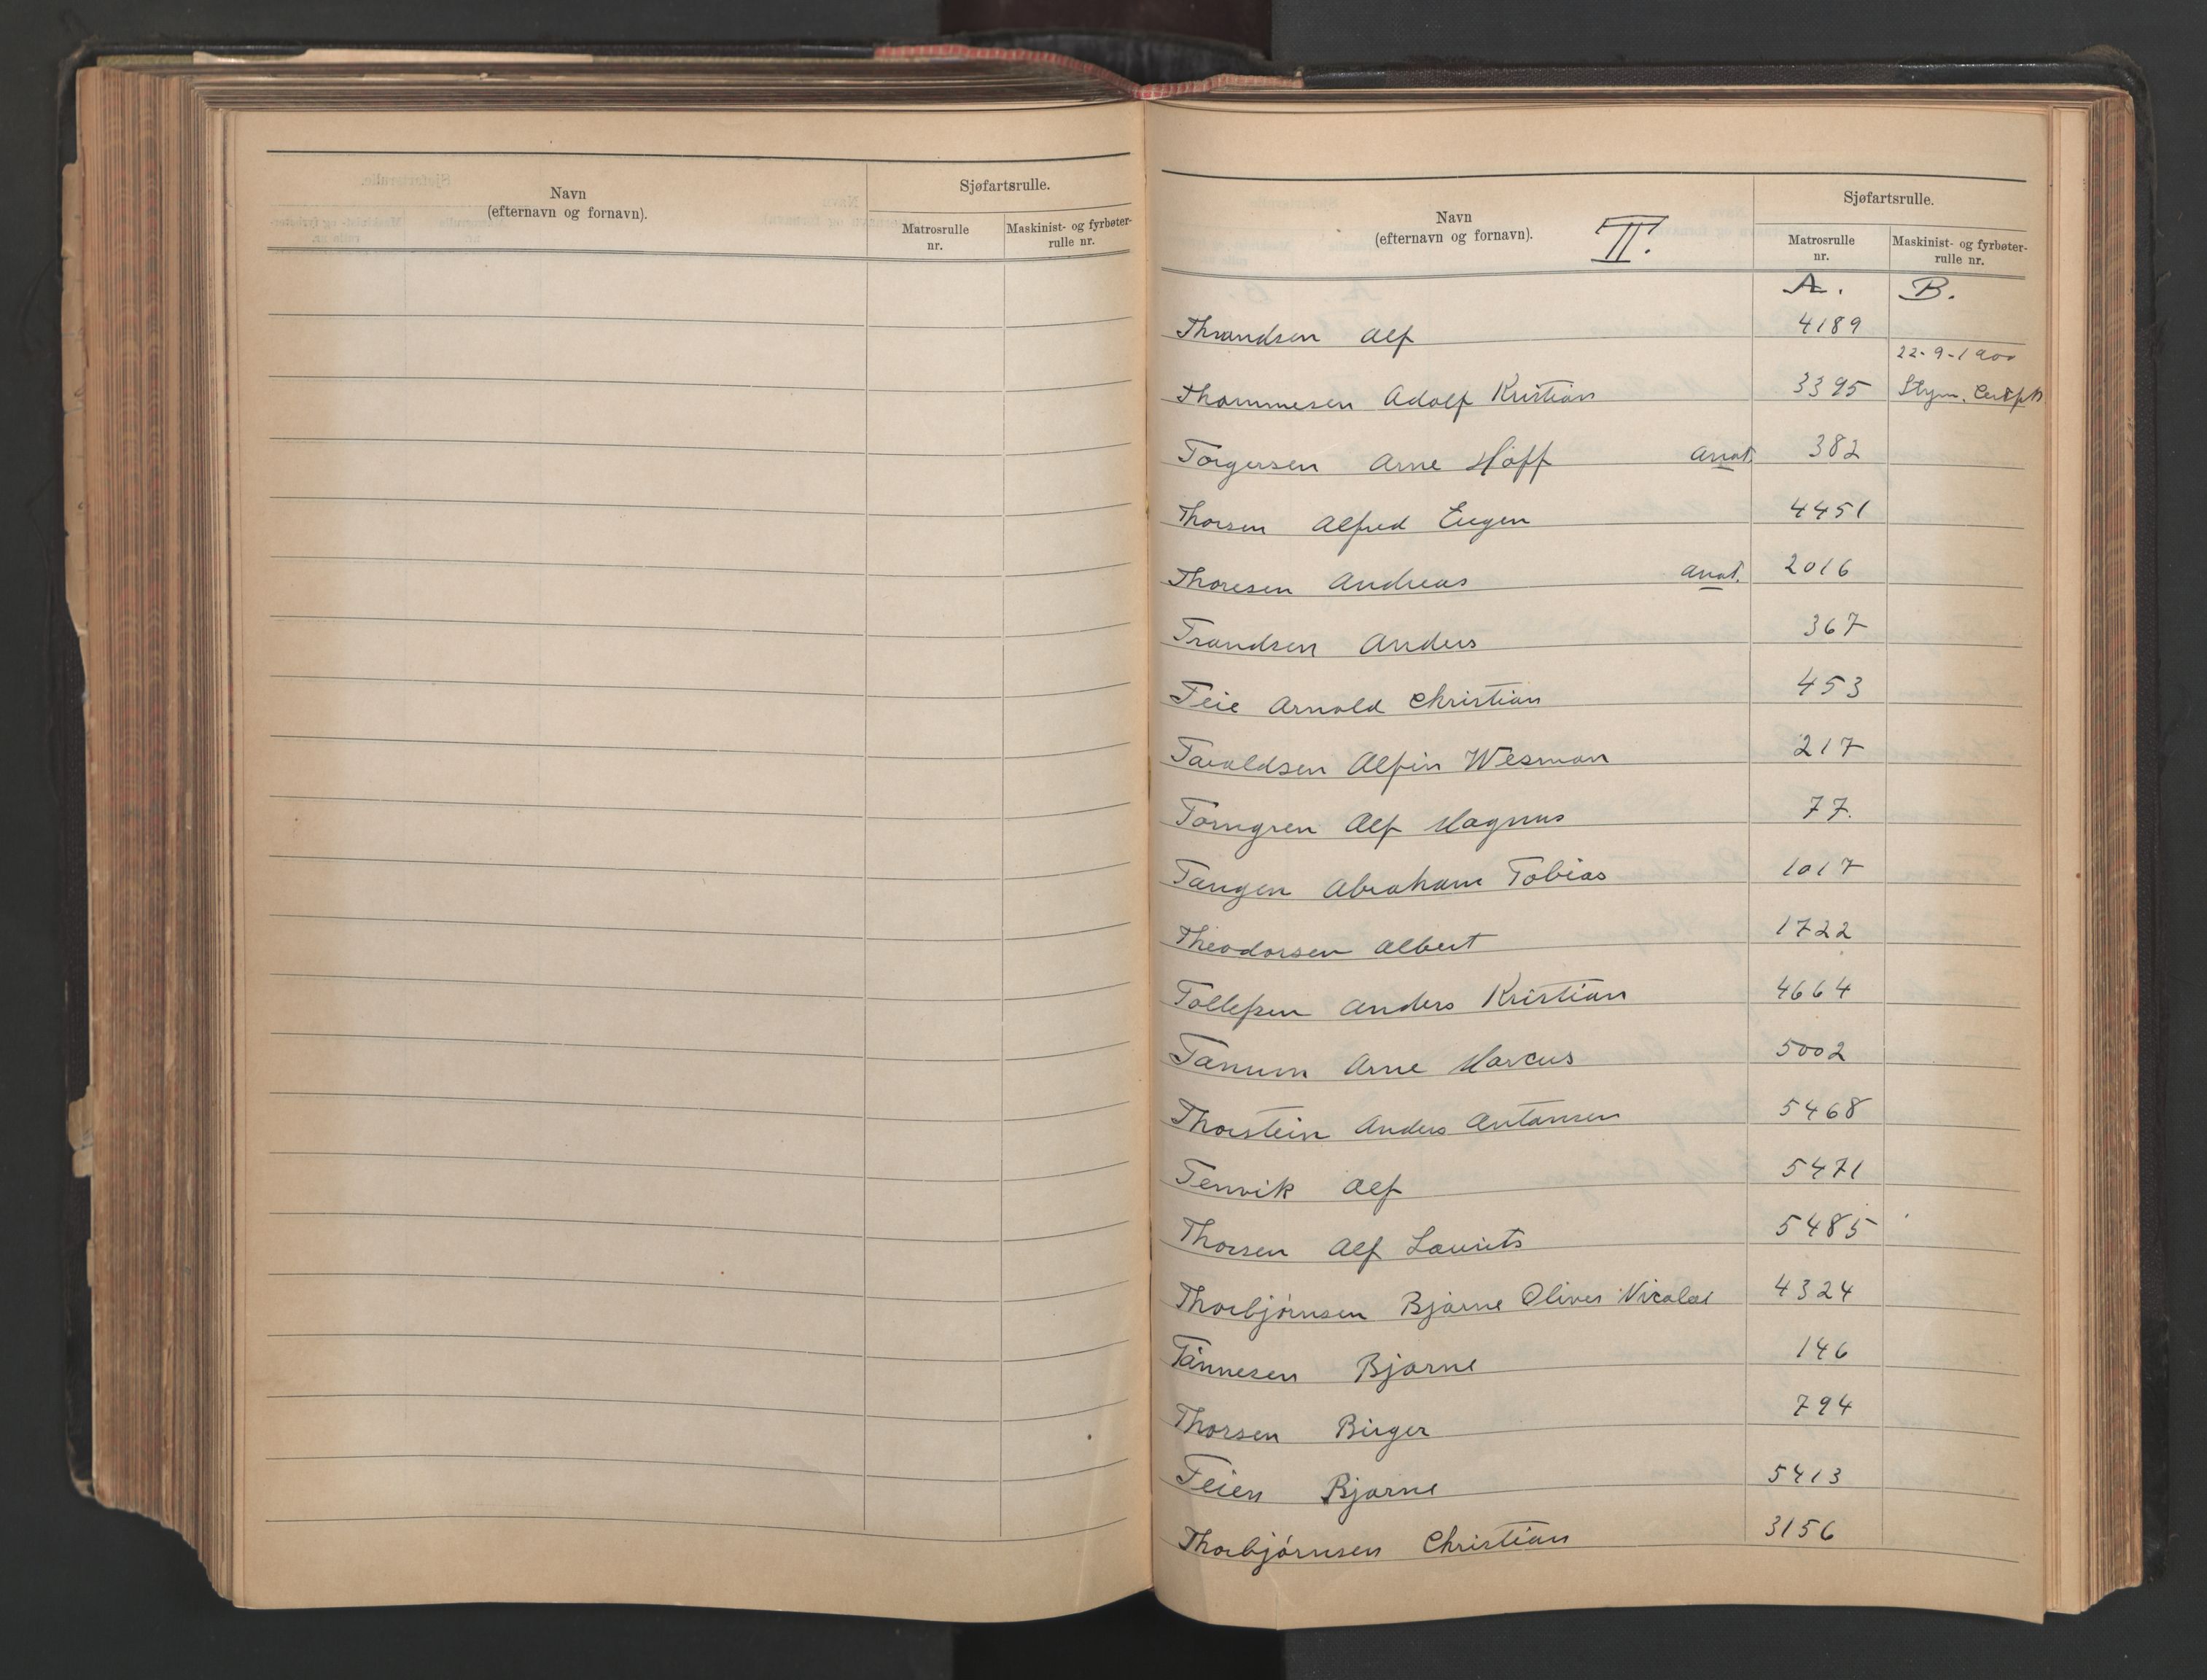 Navn
(efternavn og fornavn).
Sjøfartsrulle.
Matrosrulle
nr.
Maskinist- og fyrbøter-
rulle nr.
Navn
(efternavn og fornavn).
T.
Sjøfartsrulle.
Matrosrulle
nr.
Maskinist- og fyrbøter-
rulle nr.
A. B.
Thrandsen Alf 4189
22-9-1900
Thommesen Adolf Kristian 3395 Styrm.
Torgersen Arne Hoff anat. 382
Thorsen Alfred Eugen 4451
Thoresen Andreas anat. 2016
Trandsen Anders 367
Teie Arnold Christian 453
Taraldsen Alfin Wesman 217
Torngren Alf Magnus 77.
Tangen Abraham Tobias 1017
Theodorsen Albert 1722
Tollefsen Anders Kristian 4664
Tanum Arne Marcus 5002
Thorstein Anders Antonsen 5468
Tenvik Alf 5471
Thorsen Alf Laurits 5485
Thorbjørnsen Bjarne Oliver Nicolai 4324
Tønnesen Bjarne 146
Thorsen Birger 794
Teien Bjarne 5413
Thorbjørnsen Christian 3156